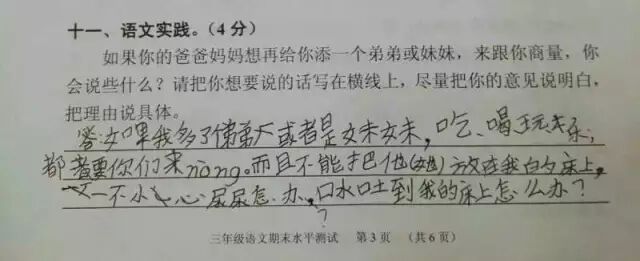 十一、语文实践。(4分)
如果你的爸爸妈妈想再给你添一个弟弟或妹妹，来跟你商量，你
会说些什么？请把你想要说的话写在横线上，尽量把你的意见说明白，
把理由说具体。
答：如果我多了個弟弟或者是妹妹，吃、喝玩乐，
都要你们来nòng。而且不能把他(她)放在我的床上，
万一不小心尿尿怎办，口水吐到我的床上怎么办？
？
三年级语文期末水平测试 第3页 (共6页)